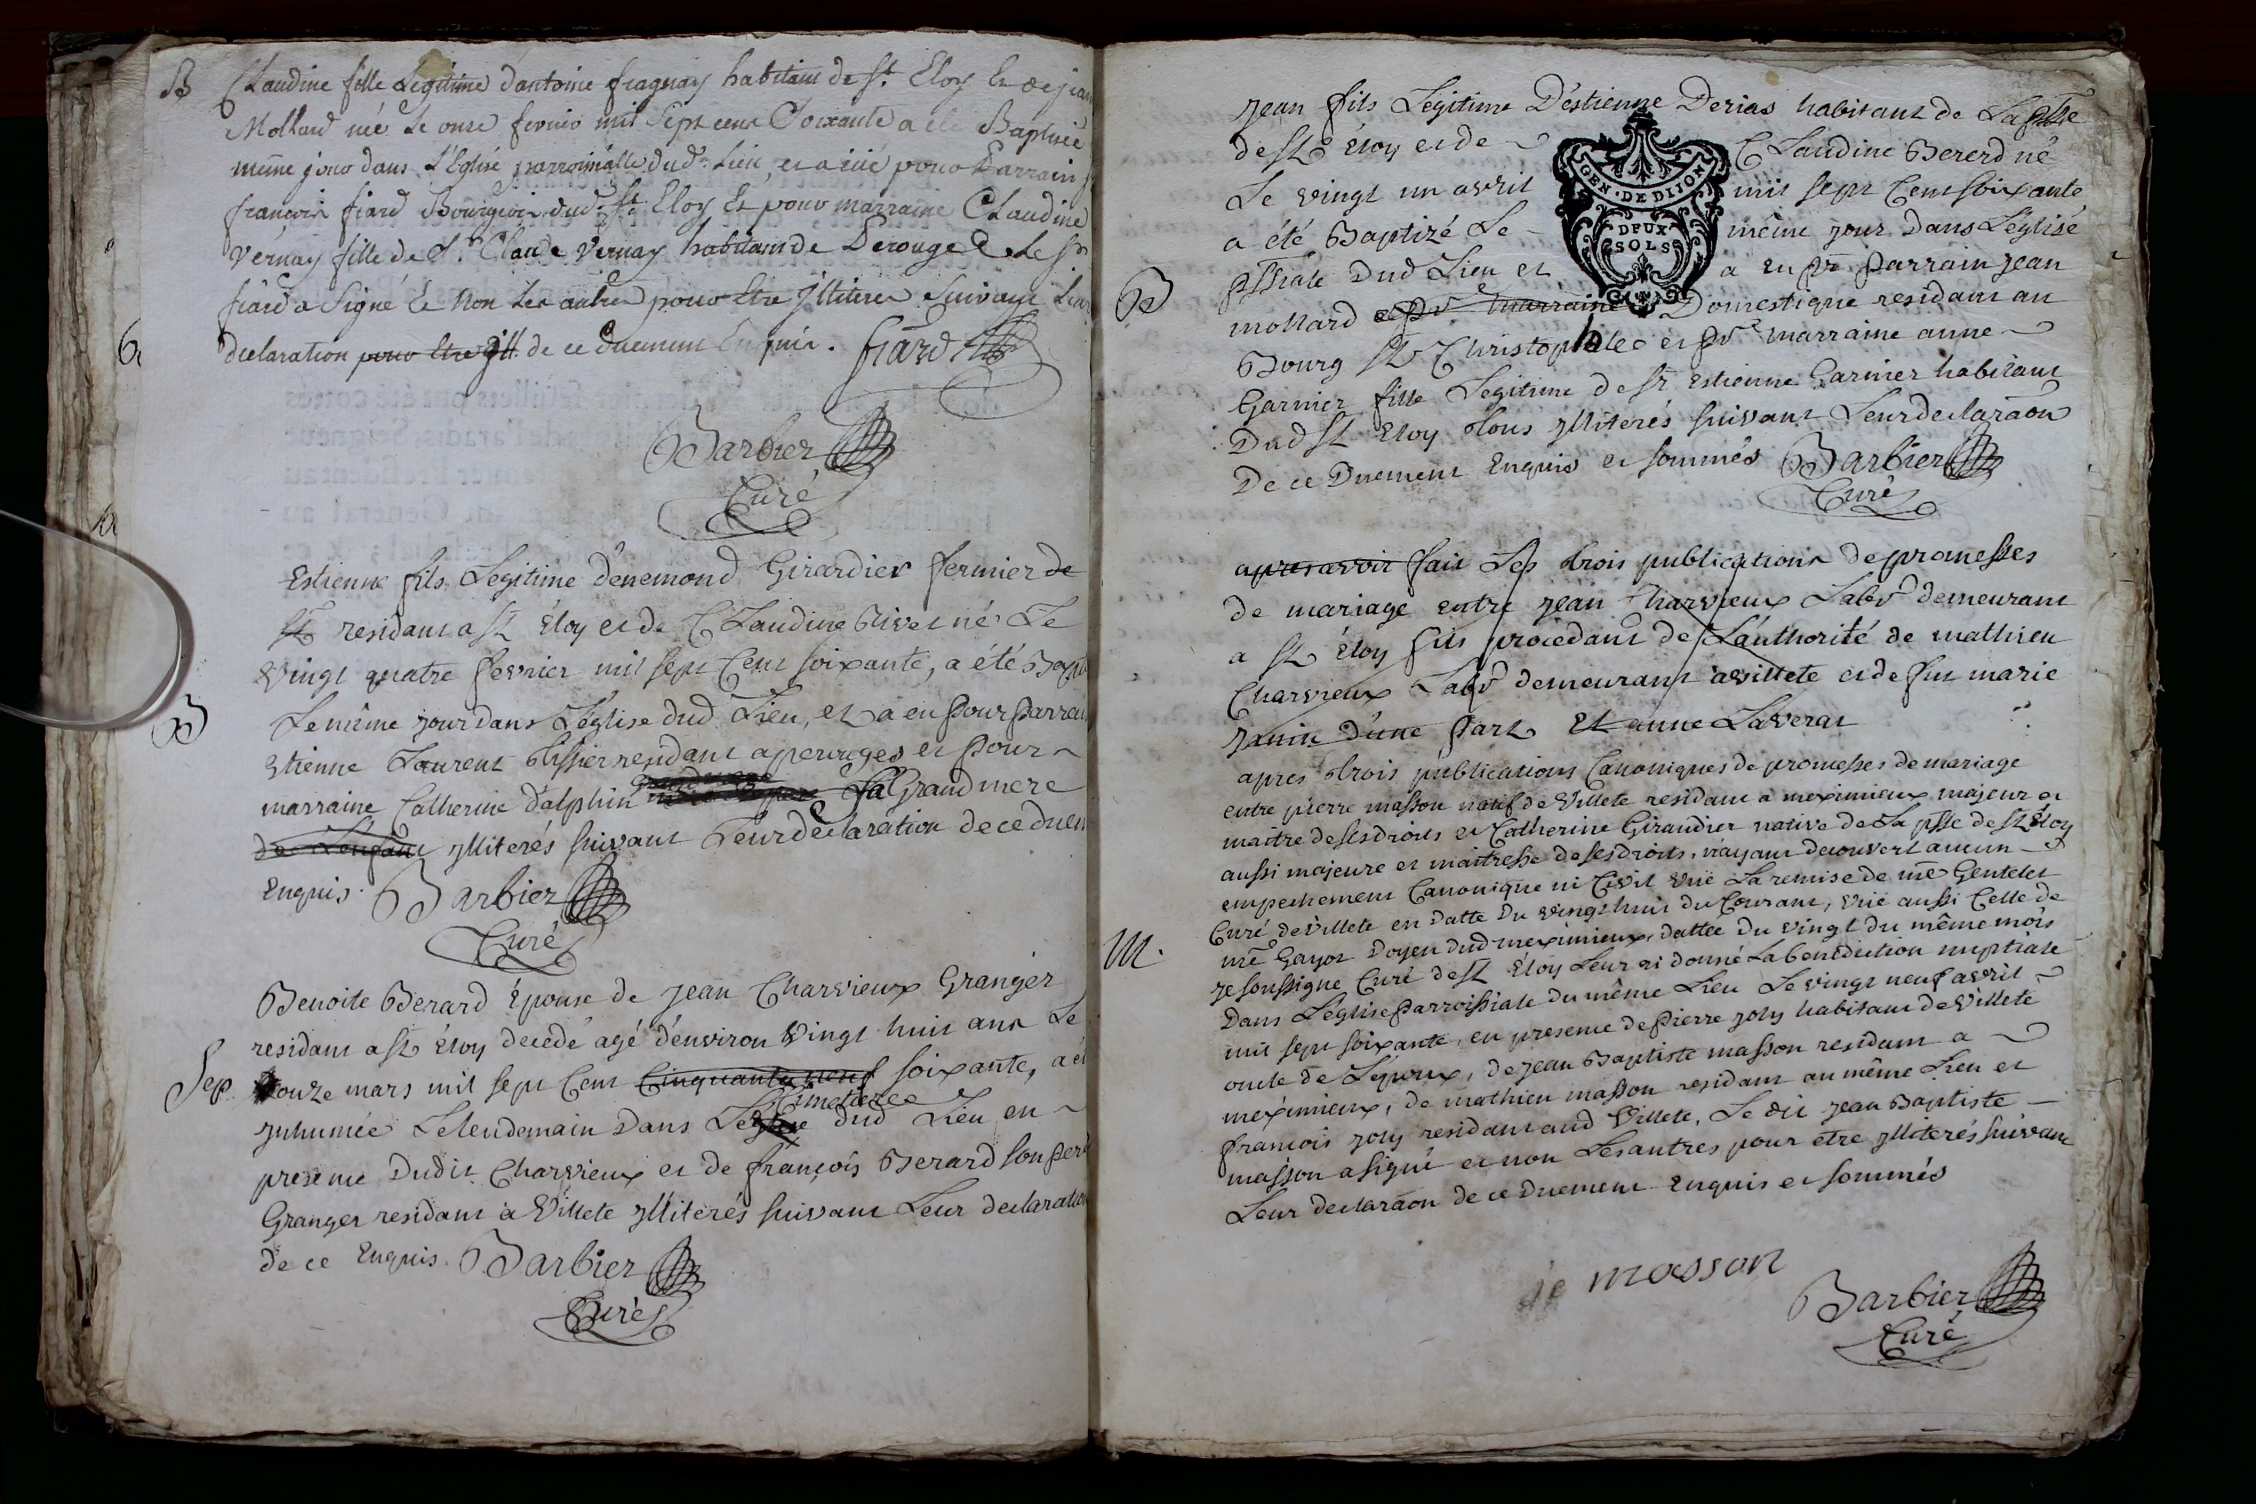 B Claudine fille Legitime d'antoine fragnay habitant de St. Eloy Et de jean
Mollard née Le onze fevrier mil Sept cens Soixante a été Baptisée
même jour dans L'Eglise parroissialle dud. Lieu, et a eue pour Parrain
françois fiard Bourgeois dud. St. Eloy Et pour marraine Claudine
Vernay fille de Sr. Claude Vernay habitant de Perouge Le Sr
fiard a Signé Et Non Les autres pour Etre Illiterés Suivant Leur
declaration pour Etre Ill. de ce Duement Enquis. fiard
Barbier
Curé
Estienne fils Legitime d'enemond Girardier fermier de
St residant a St Eloy et de Claudine Rivet né Le
vingt quatre fevrier mil sept Cent soixante, a été Bapt
B Le même jour dans L'église dud. Lieu, et a eu pour Parrain
Etienne Laurent tissier residant a perouges et pour
marraine Catherine Dalphin sa Grand mere
de L'enfant ylliterés suivant Leur declaration de ce duem
Enquis. Barbier
Curé
Benoite Berard Épouse de jean Charvieux Granger
residant a St Eloy decedé agé d'environ Vingt huit ans Le
Sep. douze mars mil sept Cent Cinquante neuf soixante, a ét
Cimetiere
ynhumée Le lendemain Dans L'eglise dud Lieu en
presence Dudit Charvieux et de françois Berard son Pere
Granger residant a Villete ylliterés suivant Leur declaration
de ce Enquis. Barbier
Curé
jean fils Legitime D'estienne Derias habitant de La psse
de St Eloy et de Claudine Bererd né
Le vingt un avril mil sept Cent soixante
a été Baptizé Le même jour Dans L'église
pssiale Dud Lieu et a eu pr. parrain jean
B mollard et pr marraine Domestique residant au
Bourg St Christophle et pr marraine anne
Garnier fille Legitime de Sr Estienne Garnier habitant
Dud St Eloy tous ylliterés suivant Leur declaraõn
De ce Duement Enquis et sommés Barbier
Curé
GEN. DE DIJON
DEUX
SOLS
apres avoir fait Les trois publications de promesses
de mariage entre jean Charvieux Labr demeurant
a St Eloy fils procedant de L'authorité de mathieu
Charvieux Labr demeurant a villete et de fut marie
janin d'une part Et anne Laverat
apres trois publications Canoniques de promesses de mariage
entre pierre masson natif de Villete residant a meximieux majeur et
maitre de ses droits et Catherine Giraudier native de La psse de St Eloy
aussi majeure et maitresse de ses droits, n'ayant decouvert aucun
empechement Canonique ni Civil vue La remise de me Gentelet
Curé de Villete en datte Du vingt huit du Courant, vue aussi Celle de
M. me Gayot Doyen dud meximieux, dattée Du vingt du même mois
je soussigne Curé de St Eloy Leur ai donné La benediction nuptiale
Dans L'église Parroissiale du même Lieu Le vingt neuf avril
mil sept soixante, en presence de Pierre joly habitant de Villete
oncle de L'epoux, de jean Baptiste masson residant a
meximieux, de mathieu masson residant au même Lieu et
françois joly residant aud Villete, Le dit jean Baptiste
masson a signé et non Les autres pour être ylliterés suivant
Leur declaraõn de ce Duement Enquis et sommés
masson
Barbier
Curé